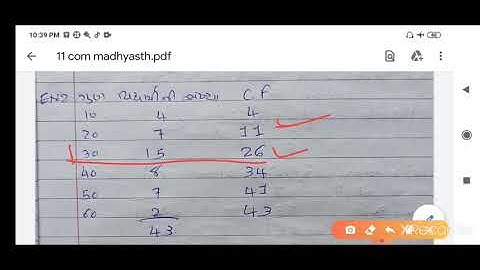 10:39 PM
46
11 com madhyasth.pdf
ગુણ વિદ્યાર્થીની સંખ્યા C F
10 4 4
20 7 11
30 15 26
40 8 34
50 7 41
60 2 43
43